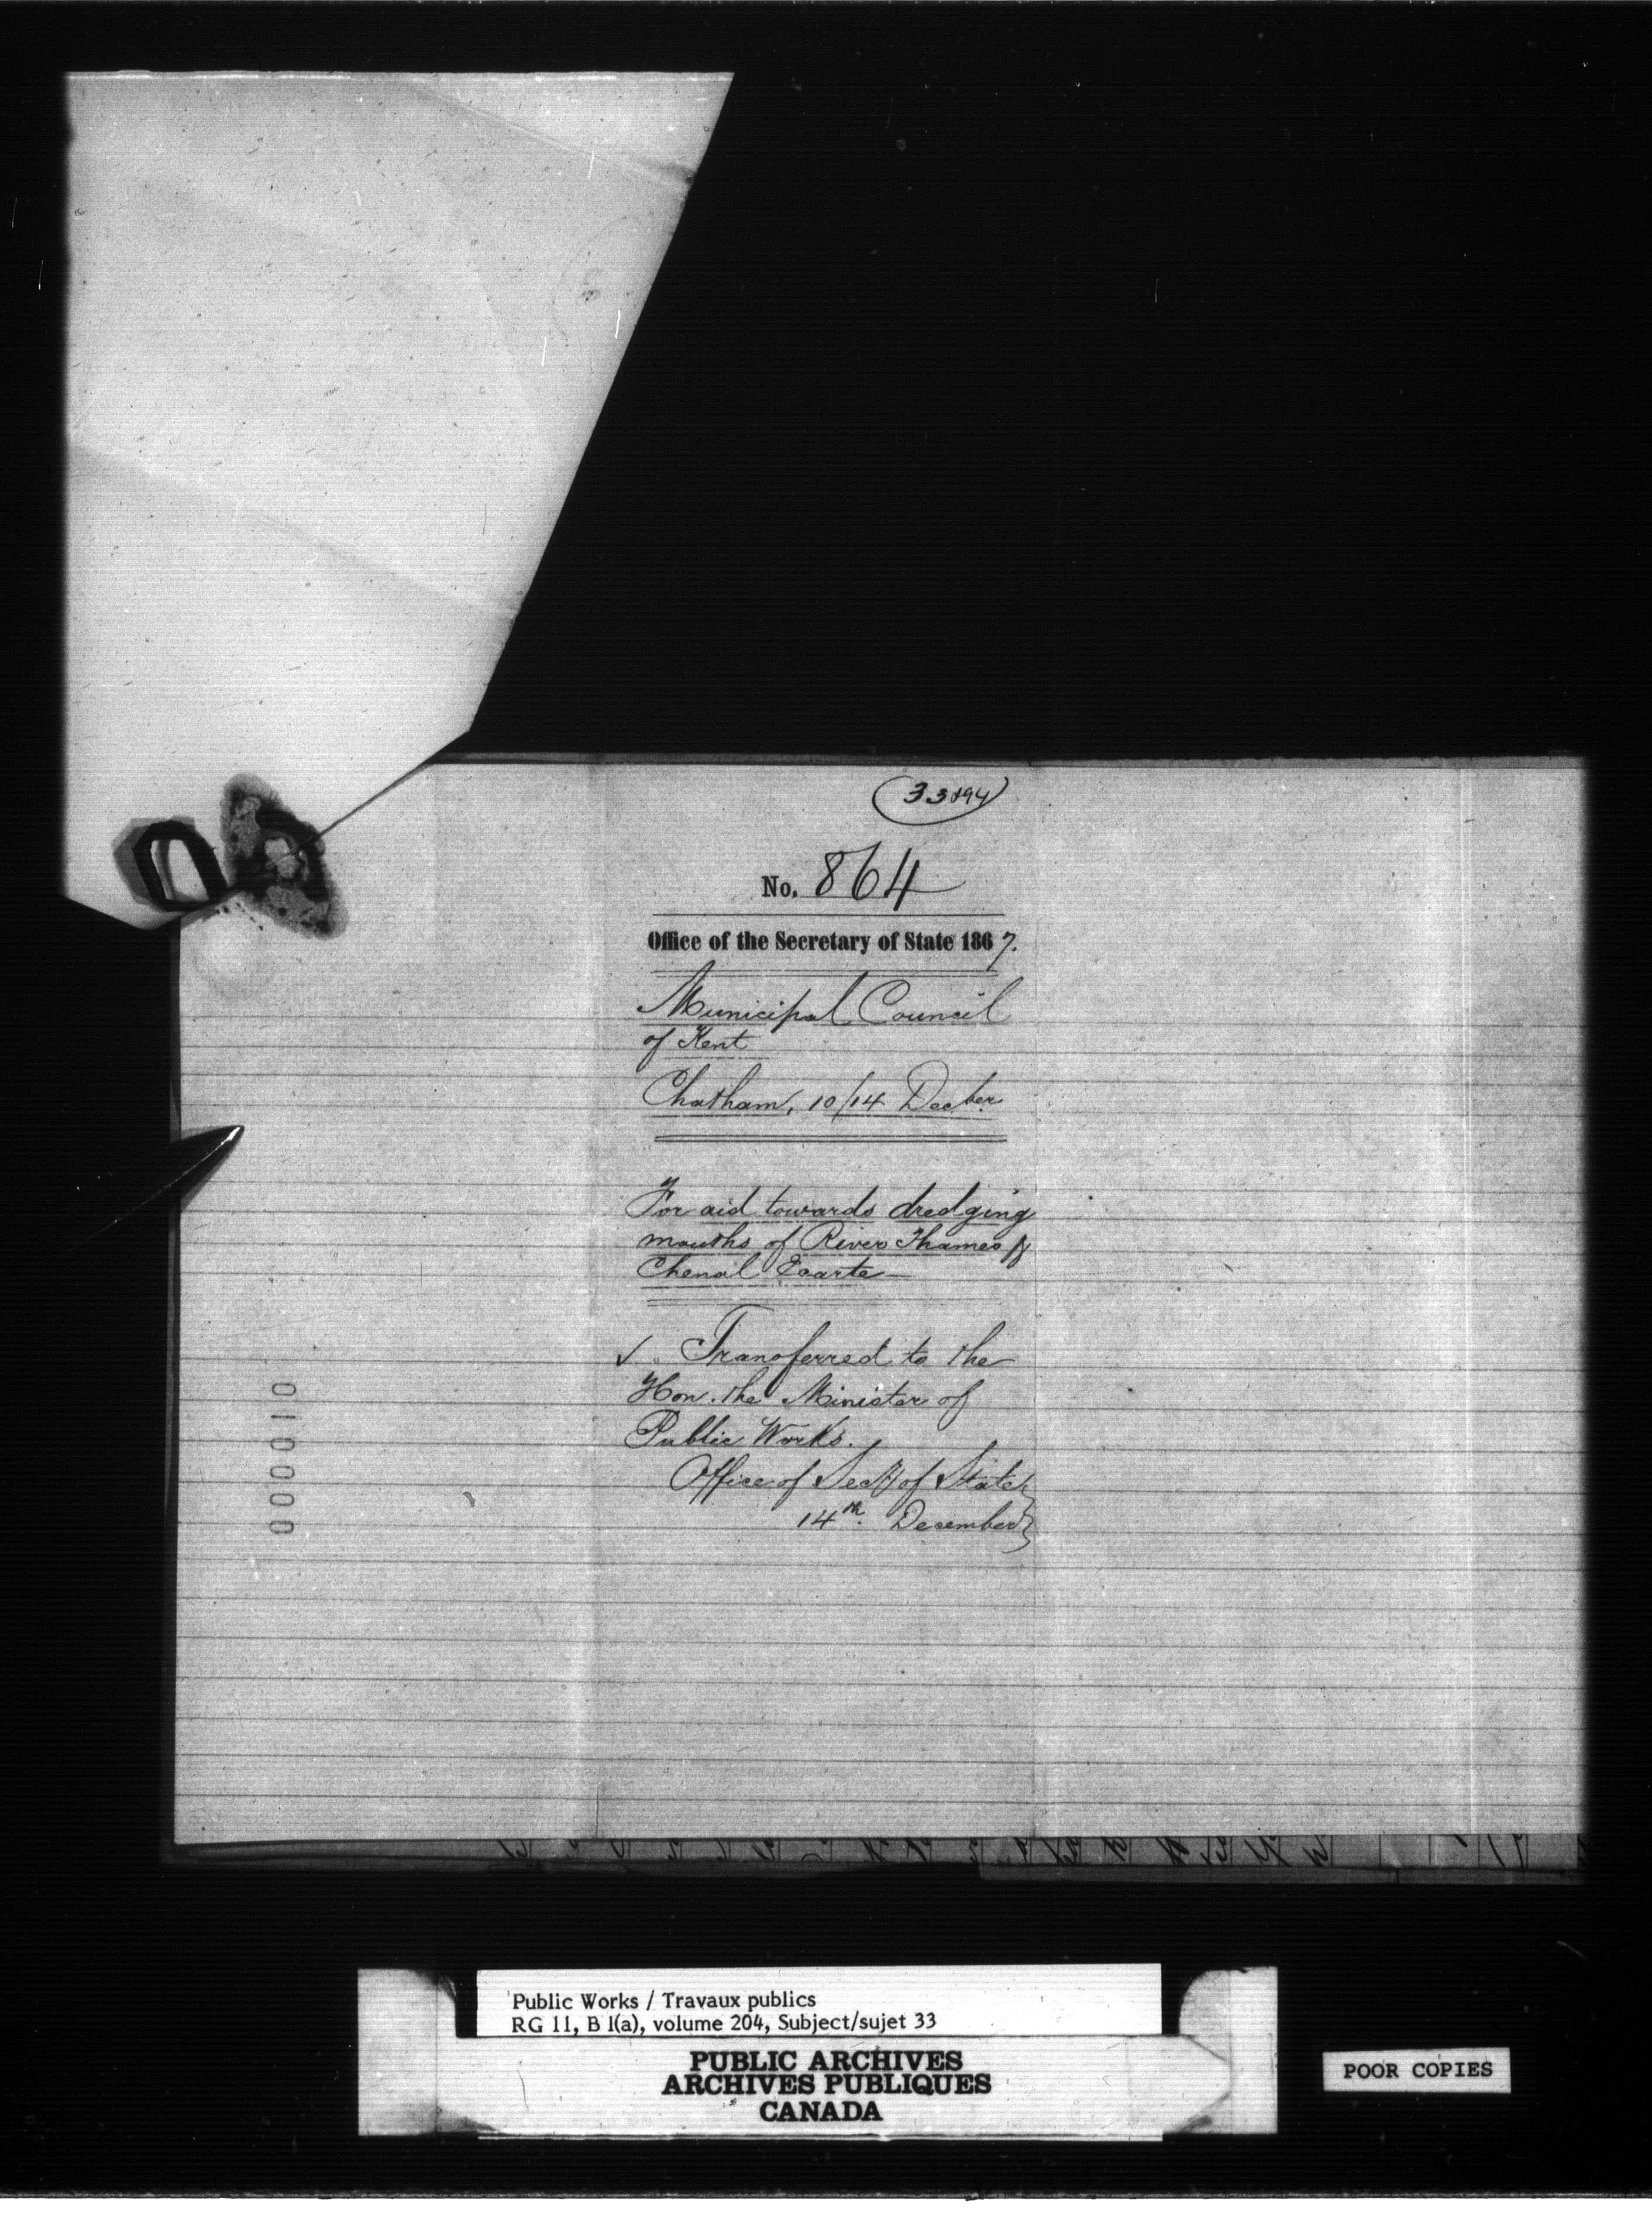 33894
No. 864
Office of the Secretary of State 1867.
Municipal Council
of Kent
Chatham, 10/14 Decber
For aid towards dredging
mouths of River Thames &
Chenal Ecarte—
✓ Transferred to the
Hon. the Minister of
Public Works.
Office of Secy of State
14th. December
000010
Public Works / Travaux publics
RG 11, B 1(a), volume 204, Subject/sujet 33
PUBLIC ARCHIVES
ARCHIVES PUBLIQUES
CANADA
POOR COPIES